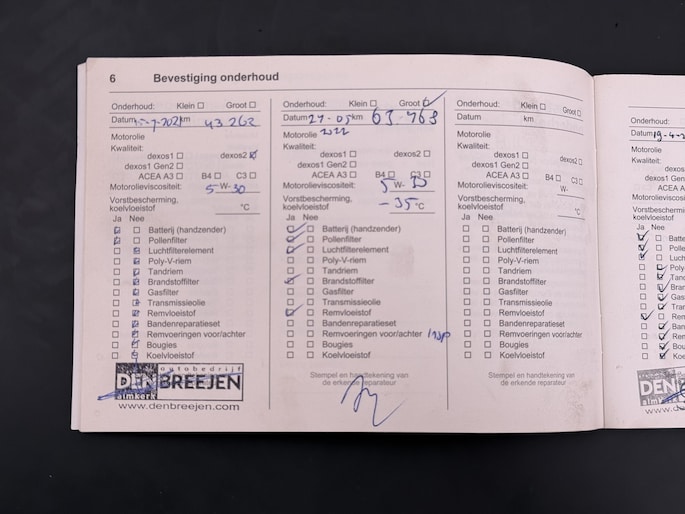 6 Bevestiging onderhoud
Onderhoud: Klein Groot
Datum 5-7-2021 km 43.262
Motorolie
Kwaliteit:
dexos1 dexos2
dexos1 Gen2
ACEA A3 B4 C3
Motorolieviscositeit: 5 W- 30
Vorstbescherming,
koelvloeistof °C
Ja Nee
Batterij (handzender)
Pollenfilter
Luchtfilterelement
Poly-V-riem
Tandriem
Brandstoffilter
Gasfilter
Transmissieolie
Remvloeistof
Bandenreparatieset
Remvoeringen voor/achter
Bougies
Koelvloeistof
autobedrijf
DEN BREEJEN
almkerk
www.denbreejen.com
Onderhoud: Klein Groot
Datum 27-05 km 63-768
Motorolie 2022
Kwaliteit:
dexos1 dexos2
dexos1 Gen2
ACEA A3 B4 C3
Motorolieviscositeit: 5 W- 30
Vorstbescherming,
koelvloeistof -35 °C
Ja Nee
Batterij (handzender)
Pollenfilter
Luchtfilterelement
Poly-V-riem
Tandriem
Brandstoffilter
Gasfilter
Transmissieolie
Remvloeistof
Bandenreparatieset
Remvoeringen voor/achter
Bougies
Koelvloeistof
Stempel en handtekening van
de erkende reparateur
Onderhoud: Klein Groot
Datum km
Motorolie
Kwaliteit:
dexos1 dexos2
dexos1 Gen2
ACEA A3 B4 C3
Motorolieviscositeit: W-
Vorstbescherming,
koelvloeistof °C
Ja Nee
Batterij (handzender)
Pollenfilter
Luchtfilterelement
Poly-V-riem
Tandriem
Brandstoffilter
Gasfilter
Transmissieolie
Remvloeistof
Bandenreparatieset
Remvoeringen voor/achter
Bougies
Koelvloeistof
Stempel en handtekening van
de erkende reparateur
Onderhoud:
Datum 19-4-2
Motorolie
Kwaliteit:
dexos1
dexos1 Gen2
ACEA A3
Motorolieviscositeit
Vorstbescherming
koelvloeistof
Ja Nee
Batte
Pollen
Lucht
Poly-
Tand
Bran
Gasf
Tran
Rem
Band
Rem
Boug
Koel
DEN